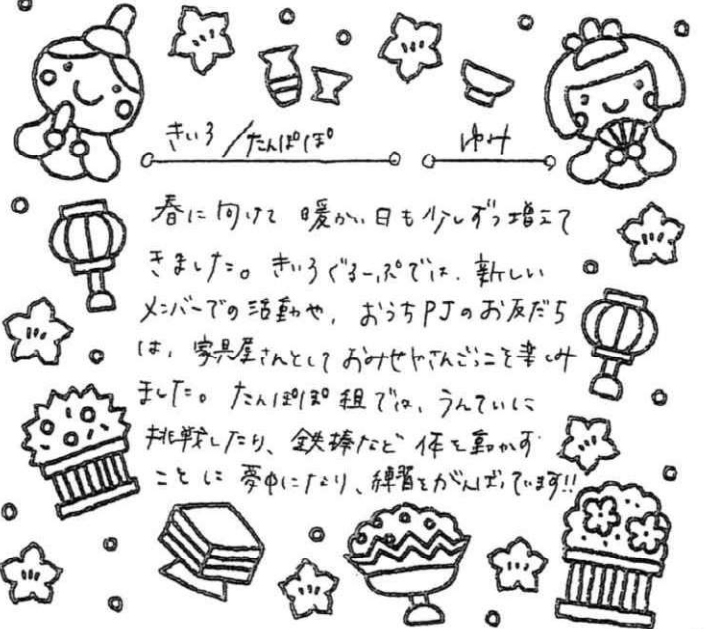 きいろ/たんぽぽ ゆみ
春に向けて 暖かい日も少しずつ増えて
きました。きいろぐるーぷでは、新しい
メンバーでの活動や、おうちPJのお友だち
は、家具屋さんとしておみせやさんごっこを楽しみ
ました。たんぽぽ組では、うんていに
挑戦したり、鉄棒など 体を動かす
ことに 夢中になり、練習をがんばっています!!